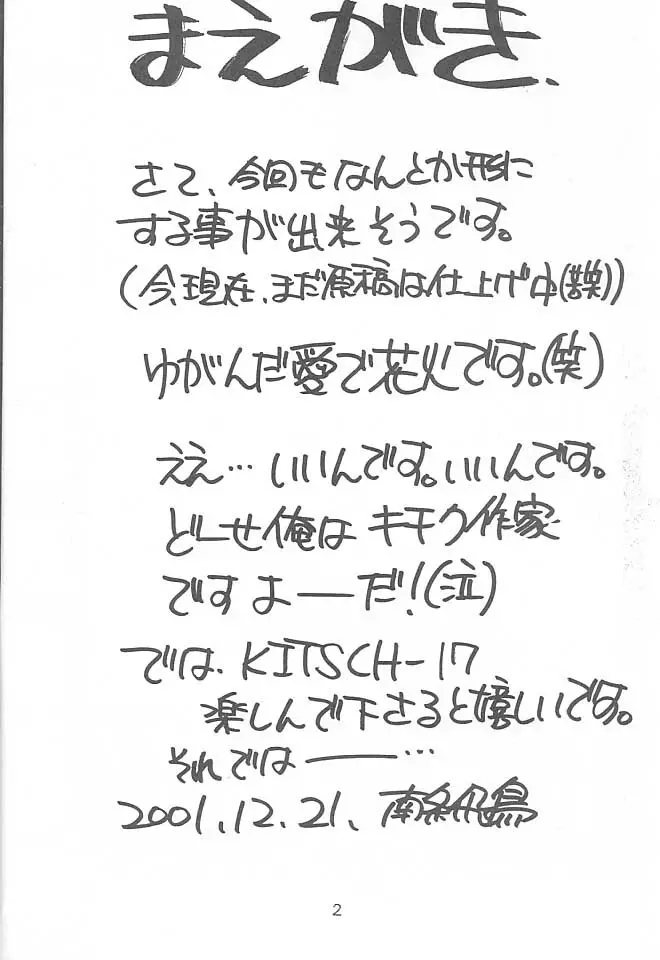 まえがき、
さて、今回もなんとか形に
する事が出来そうです。
(今、現在、まだ原稿は仕上げ中(苦笑))
ゆがんだ愛で花火です。(笑)
ええ…いいんです。いいんです。
どーせ俺は キモク作家
ですよーーだ!(泣)
では、KITSCH-17
楽しんで下さると嬉しいです。
それでは――…
2001.12.21、南条飛鳥
2